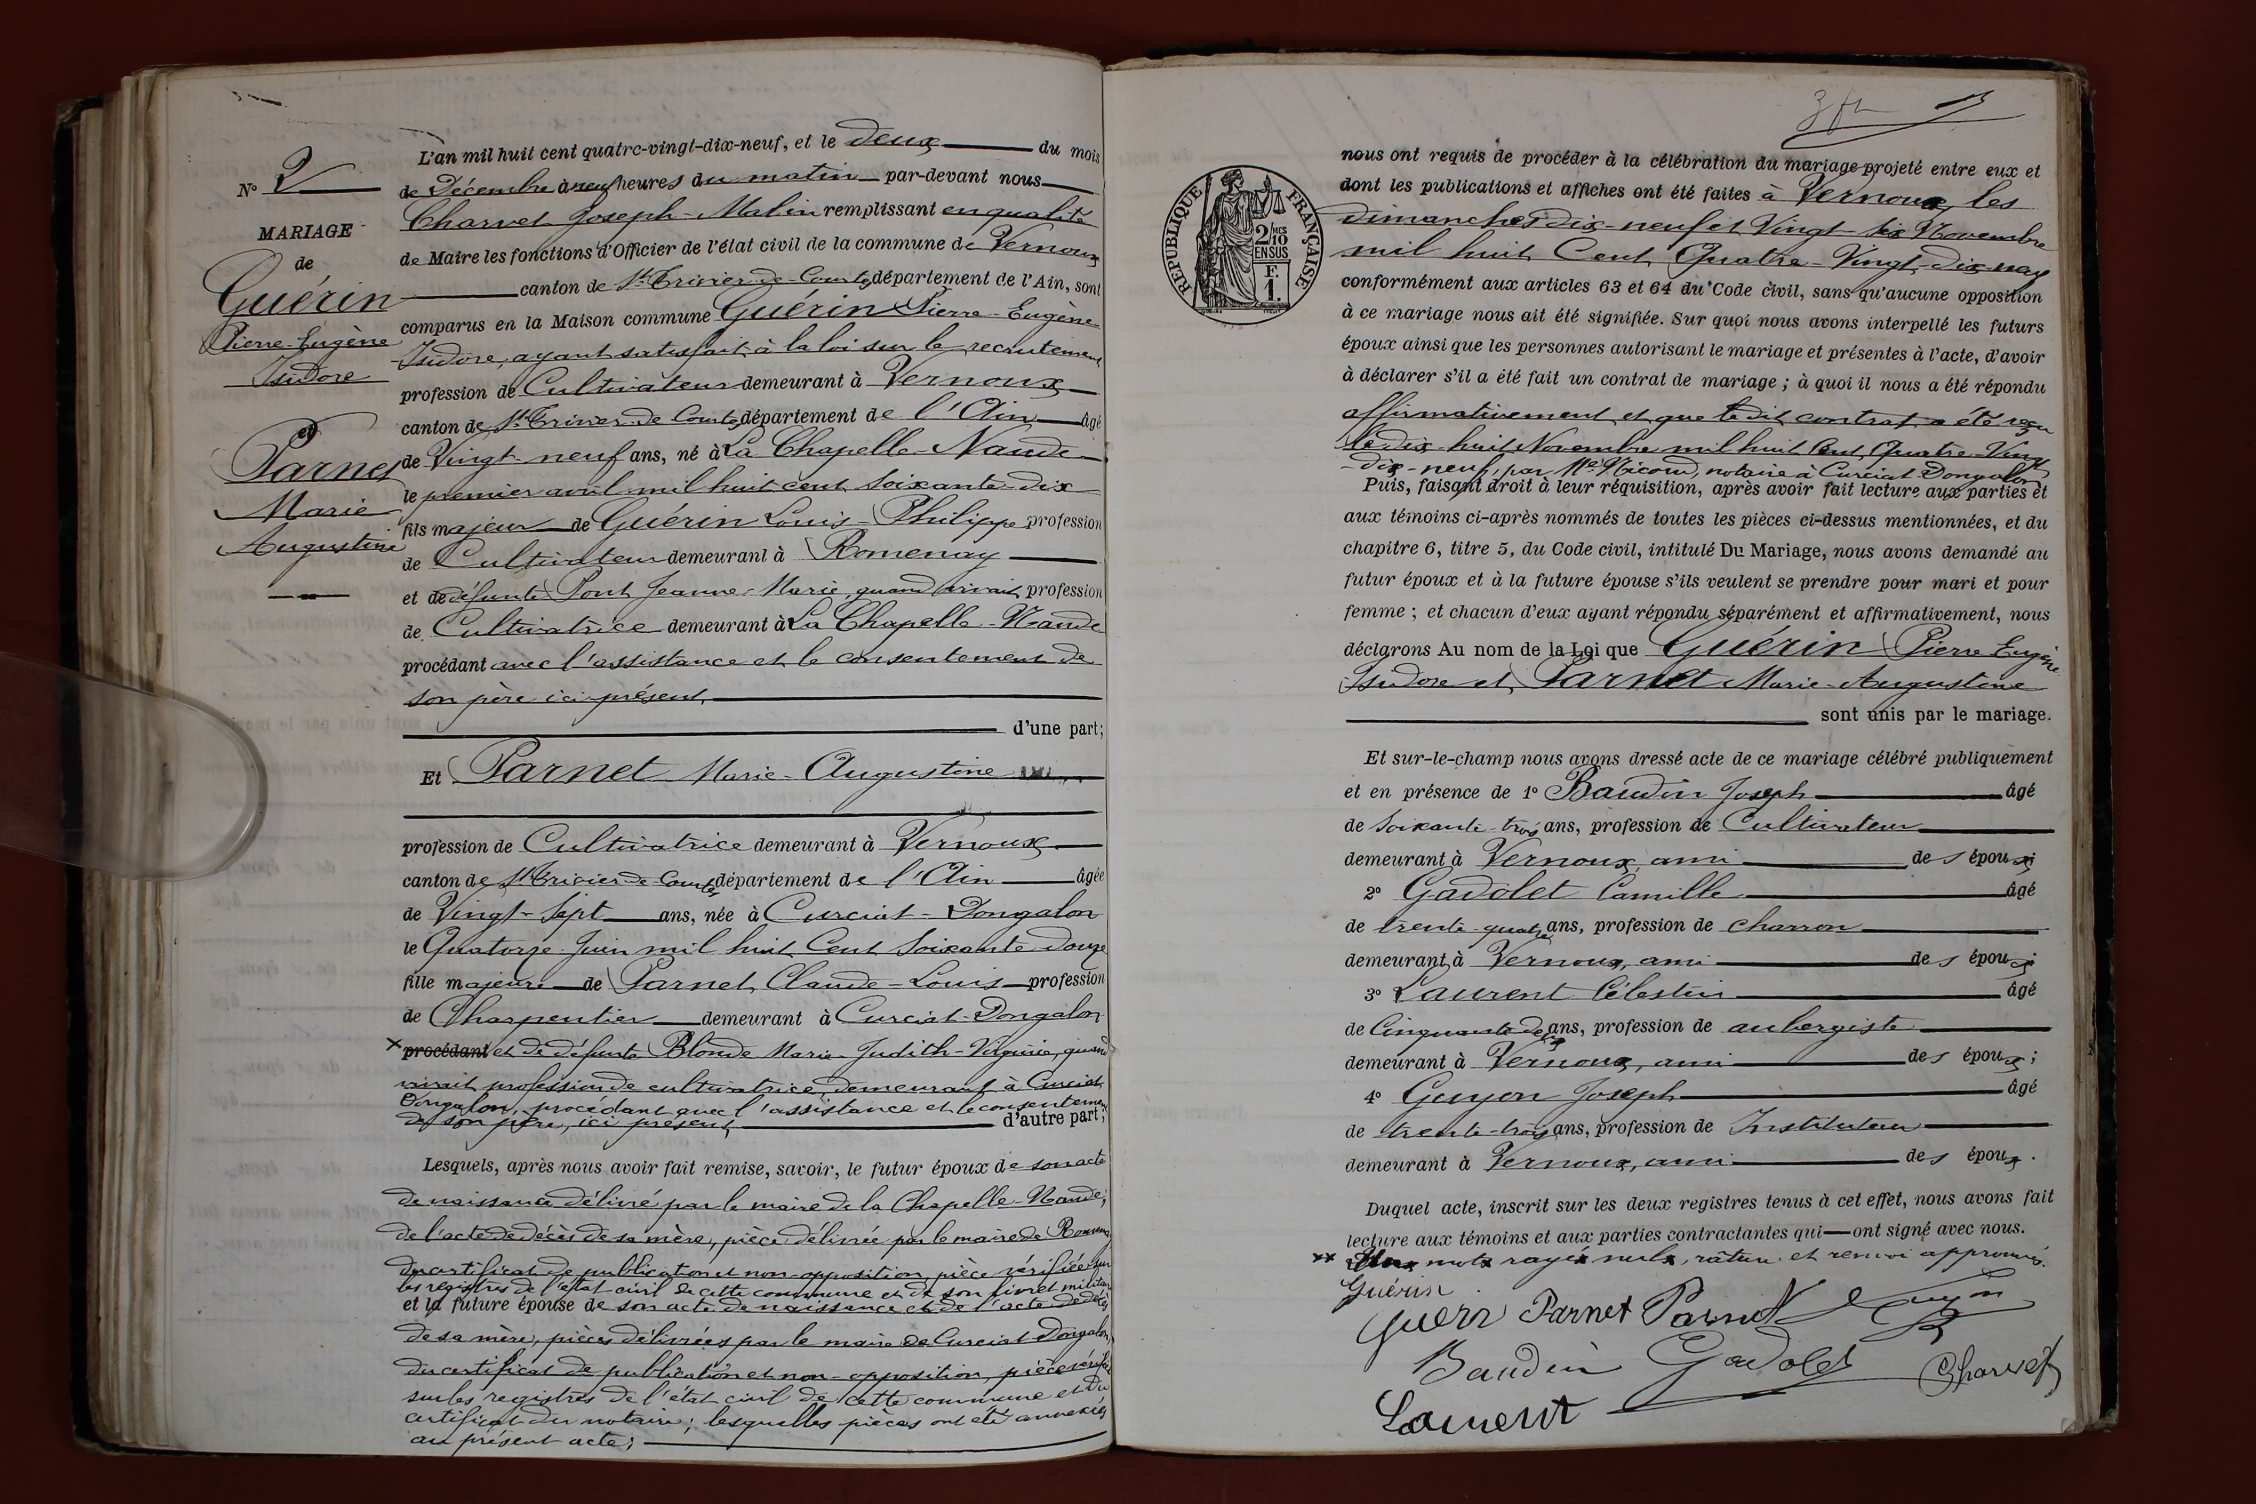 N° 2
MARIAGE
de
Guérin
Pierre-Eugène
Isidore
et
Parnet
Marie
Augustine
L'an mil huit cent quatre-vingt-dix-neuf, et le deux du mois
de Décembre à neuf heures du matin par-devant nous
Charvet Joseph-Malin remplissant en qualité
de Maire les fonctions d'Officier de l'état civil de la commune de Vernoux
canton de St Trivier-de-Courtes département de l'Ain, sont
comparus en la Maison commune Guérin Pierre-Eugène
Isidore, ayant satisfait à la loi sur le recrutement
profession de Cultivateur demeurant à Vernoux
canton de St Trivier-de-Courtes département de l'Ain âgé
de Vingt-neuf ans, né à La Chapelle-Naude
le premier avril mil huit cent soixante-dix
fils majeur de Guérin Louis-Philippe profession
de Cultivateur demeurant à Romenay
et de défunte Pont Jeanne-Marie, quand vivait profession
de Cultivatrice demeurant à La Chapelle-Naude
procédant avec l'assistance et le consentement de
son père ici présent,
d'une part;
Et Parnet Marie-Augustine
profession de Cultivatrice demeurant à Vernoux
canton de St Trivier-de-Courtes département de l'Ain âgée
de Vingt-Sept ans, née à Curciat-Dongalon
le Quatorze Juin mil huit Cent Soixante-douze
fille majeure de Parnet Claude-Louis profession
de Charpentier demeurant à Curciat-Dongalon
x procédant et de défunte Blonde Marie-Judith-Virginie, quand
vivait profession de cultivatrice, demeurant à Curciat
Dongalon, procédant avec l'assistance et le consentement
de son père, ici présent, d'autre part;
Lesquels, après nous avoir fait remise, savoir, le futur époux de son acte
de naissance délivré par le maire de la Chapelle-Naude;
de l'acte de décès de sa mère, pièce délivrée par le maire de Romenay
du certificat de publication et non-opposition, pièce vérifiée sur
les registres de l'état civil de cette commune et de son livret militaire
et la future épouse de son acte de naissance et de l'acte de décès
de sa mère, pièces délivrées par le maire de Curciat-Dongalon,
du certificat de publication et non-opposition, pièce vérifiée
sur les registres de l'état civil de cette commune et du
certificat du notaire; lesquelles pièces ont été annexées
au présent acte;
RÉPUBLIQUE FRANÇAISE
2/10 MES
EN SUS
F.
1.
nous ont requis de procéder à la célébration du mariage projeté entre eux et
dont les publications et affiches ont été faites à Vernoux, les
dimanches dix-neuf et Vingt-six Novembre
mil huit Cent Quatre-Vingt-dix-neuf
conformément aux articles 63 et 64 du Code civil, sans qu'aucune opposition
à ce mariage nous ait été signifiée. Sur quoi nous avons interpellé les futurs
époux ainsi que les personnes autorisant le mariage et présentes à l'acte, d'avoir
à déclarer s'il a été fait un contrat de mariage; à quoi il nous a été répondu
affirmativement et que le dit contrat a été reçu
le dix-huit Novembre mil huit Cent Quatre-Vingt
-dix-neuf, par Me Nicoud, notaire à Curciat-Dongalon
Puis, faisant droit à leur réquisition, après avoir fait lecture aux parties et
aux témoins ci-après nommés de toutes les pièces ci-dessus mentionnées, et du
chapitre 6, titre 5, du Code civil, intitulé Du Mariage, nous avons demandé au
futur époux et à la future épouse s'ils veulent se prendre pour mari et pour
femme; et chacun d'eux ayant répondu séparément et affirmativement, nous
déclarons Au nom de la Loi que Guérin Pierre Eugène
Isidore et Parnet Marie-Augustine
sont unis par le mariage.
Et sur-le-champ nous avons dressé acte de ce mariage célébré publiquement
et en présence de 1° Baudin Joseph âgé
de soixante-trois ans, profession de Cultivateur
demeurant à Vernoux, ami des époux;
2° Gadolet Camille âgé
de trente-quatre ans, profession de charron
demeurant à Vernoux, ami des époux;
3° Laurent Célestin âgé
de Cinquante-deux ans, profession de aubergiste
demeurant à Vernoux, ami des époux;
4° Guyon Joseph âgé
de trente-trois ans, profession de Instituteur
demeurant à Vernoux, ami des époux.
Duquel acte, inscrit sur les deux registres tenus à cet effet, nous avons fait
lecture aux témoins et aux parties contractantes qui ont signé avec nous.
xx mots rayés nuls, rature et renvoi approuvés.
Guérin
Guerin Parnet Parnet Guyon
Baudin Gadolet Charvet
Laurent